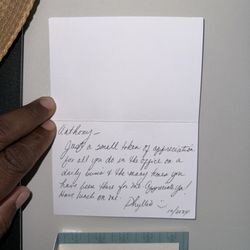 Anthony-
Just a small token of appreciation
for all you do in the office on a
daily basis & the many times you
have been there for me. Appreciate ya!
Have lunch on me.
Phyllis :)
12/2024